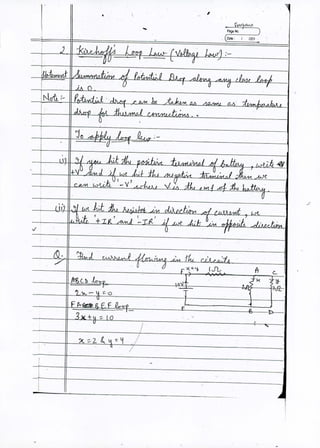 Page No.
Date
2 Kirchoff's Loop Law (Voltage Law) :-
Statement Summation of Potential Drop along any close loop
is 0.
Note :- Potential drop can be taken as same as temperature
drop for thermal connections.
To apply loop law :-
(i) If you hit the positive terminal of battery, write
+V and if we hit the negative terminal then we
can write '-V' where V is the emf of the battery.
(ii) If we hit the resistor in direction of current, we
write '+IR' and '-IR' if we hit in opposite direction
Q. Find current flowing in the circuit.
F x+y 1Ω A C
ABCD loop
x y
10V 2Ω
2x - y = 0
E B D
FABE F loop
3x + y = 10
x = 2 & y = 4